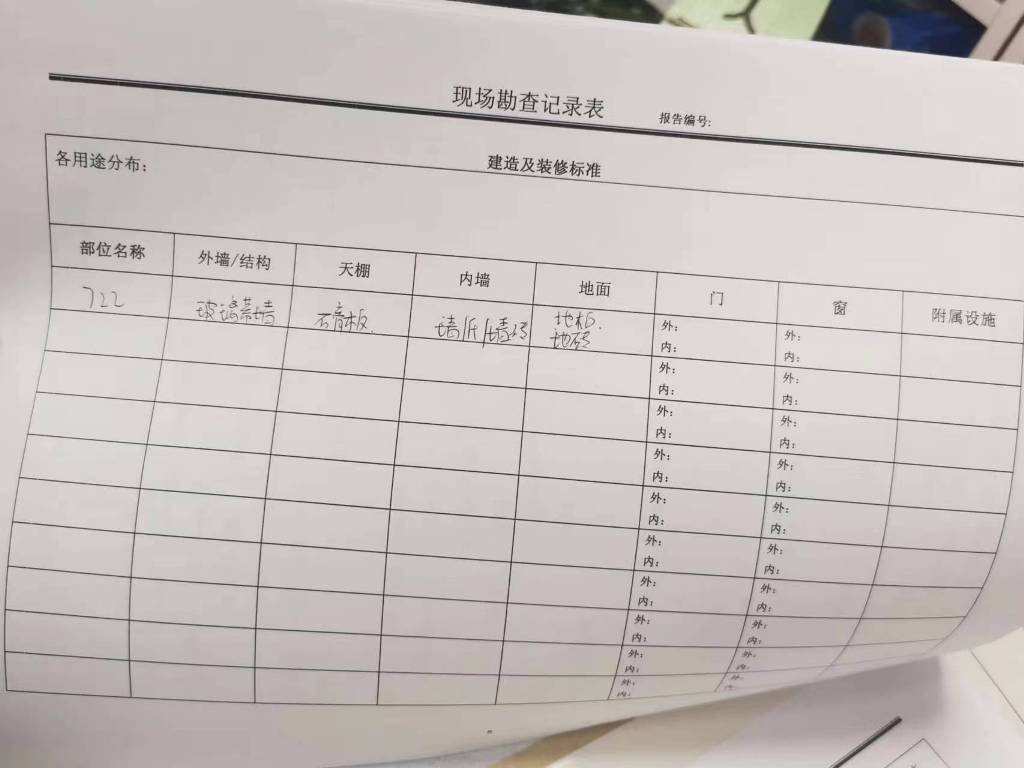 现场勘查记录表 报告编号:
建造及装修标准
各用途分布:
部位名称 外墙/结构 天棚 内墙 地面 门 窗 附属设施
722 玻璃幕墙 石膏板 墙纸/墙砖 地板. 外: 外:
地砖 内: 内:
外: 外:
内: 内:
外: 外:
内: 内:
外: 外:
内: 内:
外: 外:
内: 内:
外: 外:
内: 内:
外: 外:
内: 内:
外: 外:
内: 内:
外: 外:
内: 内:
外: 外:
内: 内: